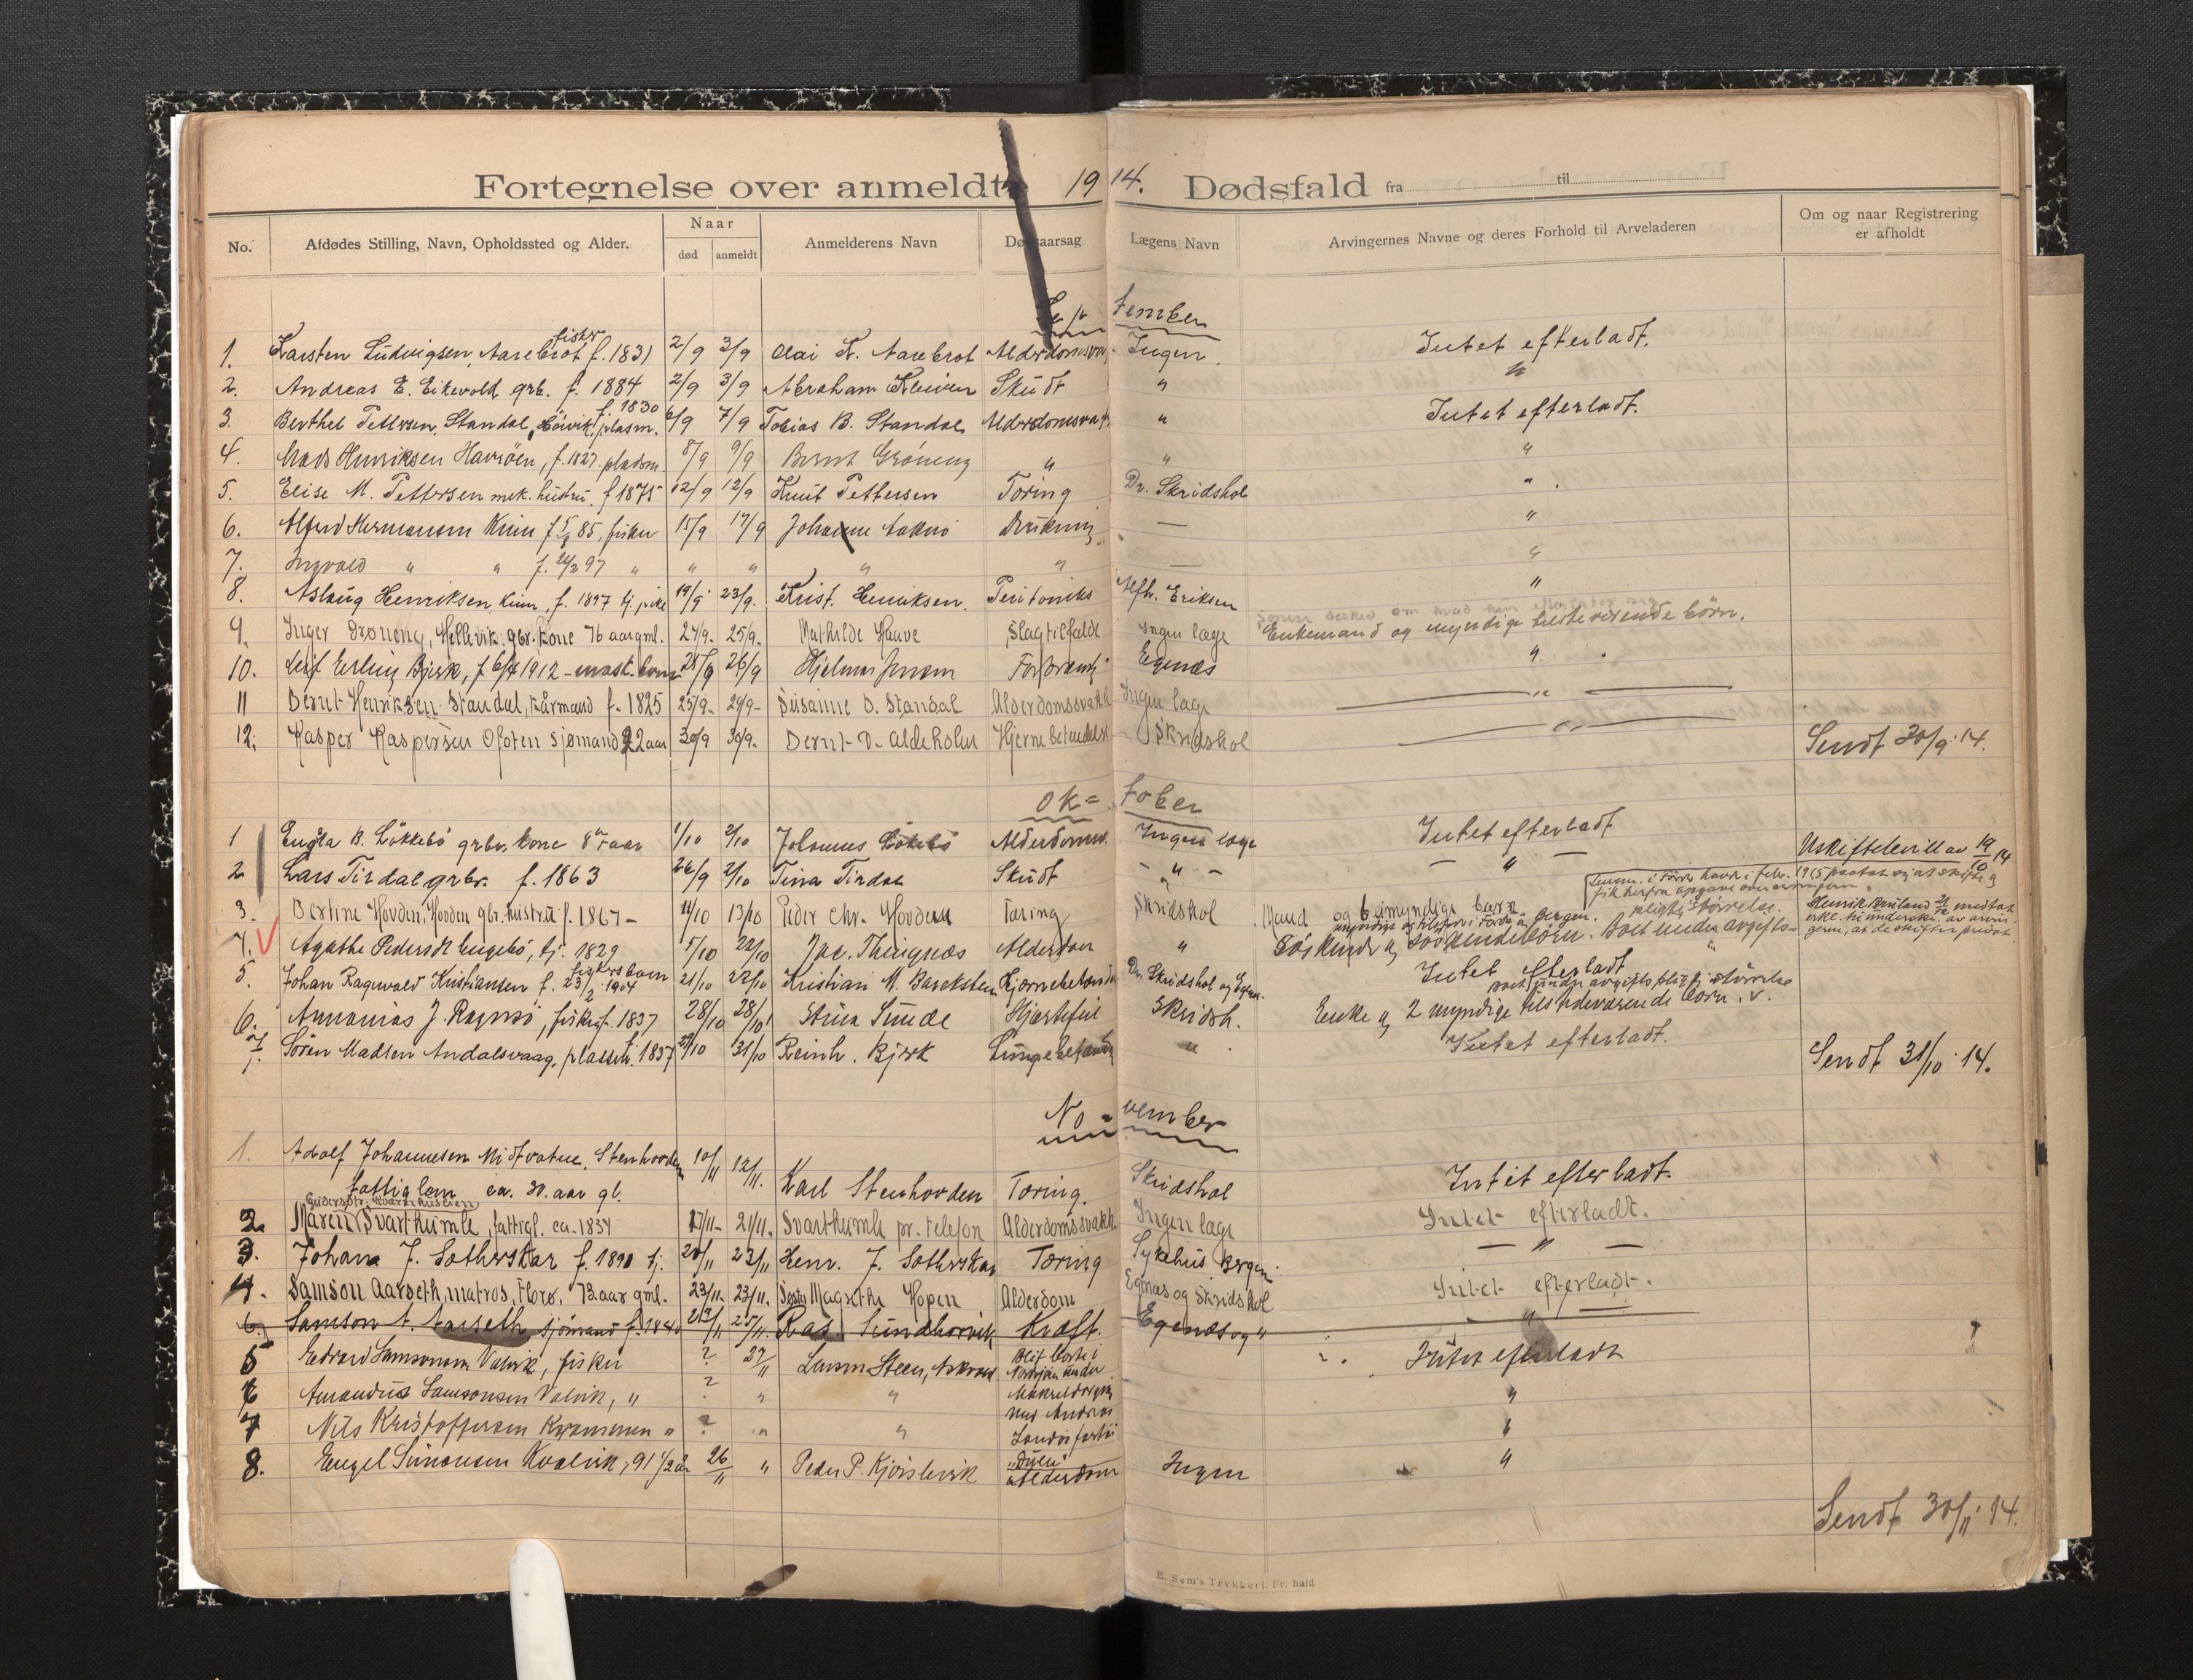 Fortegnelse over anmeldte 1914. Dødsfald fra til
No. Afdødes Stilling, Navn, Opholdssted og Alder. Naar død anmeldt Anmelderens Navn Dødsaarsag Lægens Navn Arvingernes Navne og deres Forhold til Arveladeren Om og naar Registrering er afholdt
September
1. Karsten Ludvigsen, Aarebrot fisker f. 1831 2/9 3/9 Olai K. Aarebrot Alderdomsvag. Ingen Intet efterladt.
2. Andreas E. Eikevold grb. f. 1884 2/9 3/9 Abraham Kleiven Skudt " "
3. Berthel Pettersen, Standal, plasm. f. 1830 6/9 7/9 Tobias B. Standal Alderdomsvagh. " Intet efterladt.
4. Mads Henriksen Havrøen, f. 1827 pladsm. 8/9 9/9 Bernt Grøneng " " "
5. Elise M. Pettersen mek. hustru f 1875 12/9 12/9 Knut Pettersen Tæring Dr. Skridshol "
6. Alfred Hermansen Kinn f 5/9 85, fisker 15/9 17/9 Druknin — "
7. Ingvald " " f. 24/2 97 " " " " " — "
8. Aslaug Henriksen, Kinn, f. 1897 tj. pike 19/9 23/9. Krist. Henriksen. Peritonitis Alfh. Eriksen "
9. Inger Grøneng, Hellevik, gbr. kone 76 aar gml. 24/9. 25/9. Mathilde Haave Slagtilfælde Ingen læge Enkemand og myndige tilstedeværende børn.
10. Leif Erling Bjørk, f. 6/4 1912 – mask. barn 25/9 26/9 Hjelmar Jensen Forbrændt Egenæs "
11 Bernt Henriksen Standal, kårmand f. 1825 25/9– 29/9– Susanne D. Standal Alderdomssvakh Ingen læge — " —
12. Kasper Kaspersen Ofoten sjømand 22 aar 30/9 30/9. Bernt D. Aldeholm Hjernebetændelse Skridshol — " — Sendt 30/9 14.
Ok=tober
1 Engla B. Løkkebø grbr. kone 8 aar 1/10 2/10 Johannes Løkkebø Alderdomss. Ingen læge Intet efterladt Uskiftebevill av 19/10 14
2 Lars Tirdal grbr. f. 1863 26/9 2/10 Tina Tirdal Skudt – " – — " —
3. Bertine Hovden, Hovden gbr. hustru f. 1867 – 11/10 13/10 Peder Chr. Hovden Tæring Skridshol Mand og 6 umyndige barn
4. Agathe Pedersdt Engebø, tj. 1829 5/10 22/10 Jac. Thingnæs Alderdom " Søskende og søskendebørn. Boet under avgifts-
pligtig størrelse.
Henrik Husland 21/12 mottat
erkl. til underskr. av arvin-
gerne, at de skifter privat.
5. Johan Ragnvald Kristiansen f. 23/2 1904 fiskers barn 21/10 22/10 Kristian M. Barekstein Hjernebetændelse Dr. Skridshol og Egen. Intet efterladt
boet under avgiftspligtig størrelse
6. Annanias J. Rognsø, fisker f. 1837 28/10 28/10 Stina Sunde Hjertefeil Skridsh. Enke og 2 myndige tilstedeværende børn.
7. Søren Madsen Andalsvaag, plassm. f. 1837 29/10 31/10 Reinh. Bjørk Lungebetænd " Intet efterladt. Sendt 31/10 14.
No-vember
1. Adolf Johannesen Midtvatne, Stenhovden
fattiglem ca. 30. aar gl. 10/11 12/11. Karl Stenhovden Tæring. Skridshol Intet efterladt.
2. Maren Svarthumle, fattigl. ca. 1834 17/11– 21/11. Svarthumle pr. telefon Alderdomssvakh. Ingen læge Intet efterladt.
3. Johan J. Sotherskar f. 1890 tj. 20/11 23/11 Henr. J. Sotherskar Tæring Sykehus Bergen — " —
4. Samson Aarseth, matros, Florø, 73 aar gml. 23/11. 23/11. Søster Magrethe Hopen Alderdom Egenæs og Skridshol Intet efterladt.
6. Samson A. Aarseth sjømand f. 1840 23/11 25/11. Ras. Sundhorvik Kræft. Egenæs og " "
5 Edvard Samsonsen Valvik, fisker ? 27/11 Lensm Steen, Askvoll Blit borte i
Nordsjøen under Intet efterladt
6 Amandus Samsonsen Valvik, " ? " " Makreldorging "
7 Nils Kristoffersen Kvammen " ? " " med "
8. Engel Simonsen Kvalvik, 91 1/2 år 26/11 " Peder P. Kjøislevik Alderdom Ingen "
Sendt 30/11 14.
E. Sem's Trykkeri. Fr. hald